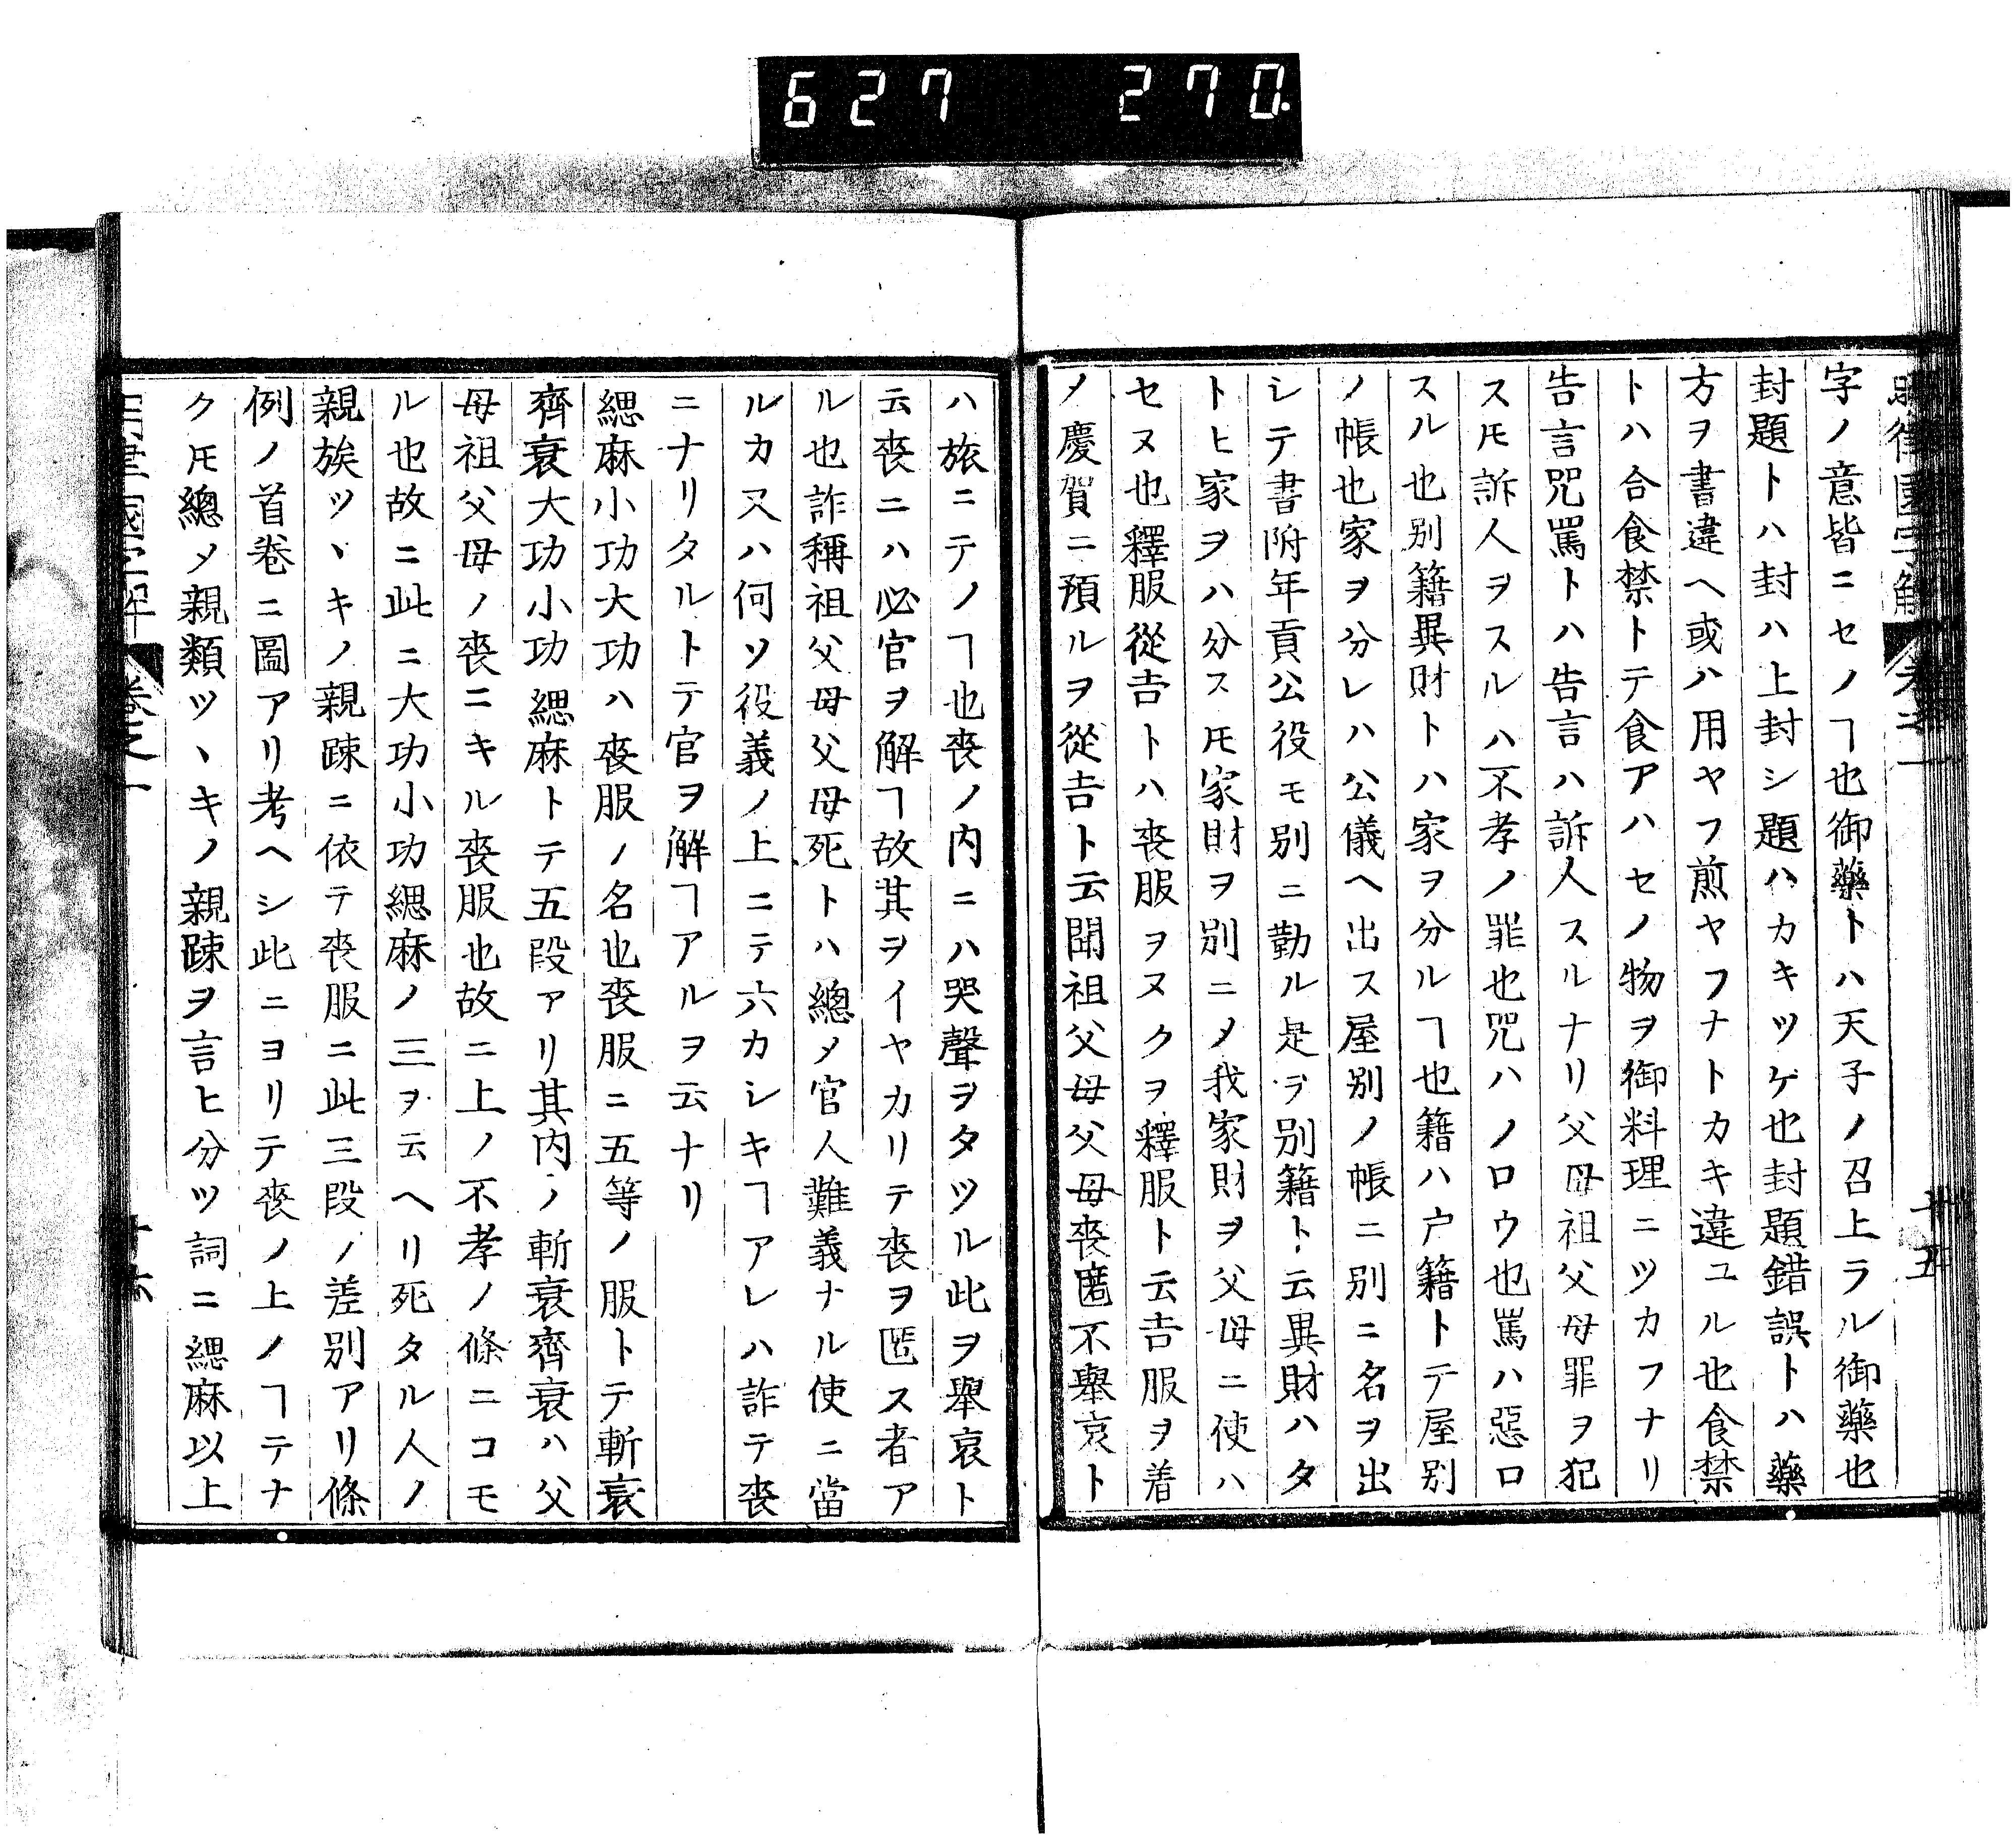 627 270
字ノ意皆ニセノヿ也御藥トハ天子ノ召上ラル御藥也
封題トハ封ハ上封シ題ハカキツケ也封題錯誤トハ藥
方ヲ書違ヘ或ハ用ヤフ煎ヤフナトカキ違ユル也食禁
トハ合食禁トテ食アハセノ物ヲ御料理ニツカフナリ
告言咒罵トハ告言ハ訴人スルナリ父母祖父母罪ヲ犯
スモ訴人ヲスルハ不孝ノ罪也咒ハノロウ也罵ハ惡口
スル也別籍異財トハ家ヲ分ルヿ也籍ハ户籍トテ屋別
ノ帳也家ヲ分レハ公儀ヘ出ス屋別ノ帳ニ別ニ名ヲ出
シテ書附年貢公役モ別ニ勤ル是ヲ別籍ト云異財ハタ
トヒ家ヲハ分スモ家財ヲ別ニメ我家財ヲ父母ニ使ハ
セヌ也釋服從吉トハ喪服ヲヌクヲ釋服ト云吉服ヲ着
ノ慶賀ニ預ルヲ從吉ト云聞祖父母父母喪匿不舉哀ト
ハ旅ニテノヿ也喪ノ内ニハ哭聲ヲタツル此ヲ舉哀ト
云喪ニハ必官ヲ解ヿ故其ヲイヤカリテ喪ヲ匿ス者ア
ル也詐稱祖父母父母死トハ總メ官人難義ナル使ニ當
ルカ又ハ何ソ役義ノ上ニテ六カシキヿアレハ詐テ喪
ニナリタルトテ官ヲ解ヿアルヲ云ナリ
緦麻小功大功ハ喪服ノ名也喪服ニ五等ノ服トテ斬衰
齊衰大功小功緦麻トテ五段アリ其内ノ斬衰齊衰ハ父
母祖父母ノ喪ニキル喪服也故ニ上ノ不孝ノ條ニコモ
ル也故ニ此ニ大功小功緦麻ノ三ヲ云ヘリ死タル人ノ
親族ツヽキノ親踈ニ依テ喪服ニ此三段ノ差別アリ條
例ノ首卷ニ圖アリ考ヘシ此ニヨリテ喪ノ上ノヿテナ
クモ總メ親類ツヽキノ親踈ヲ言ヒ分ツ詞ニ緦麻以上